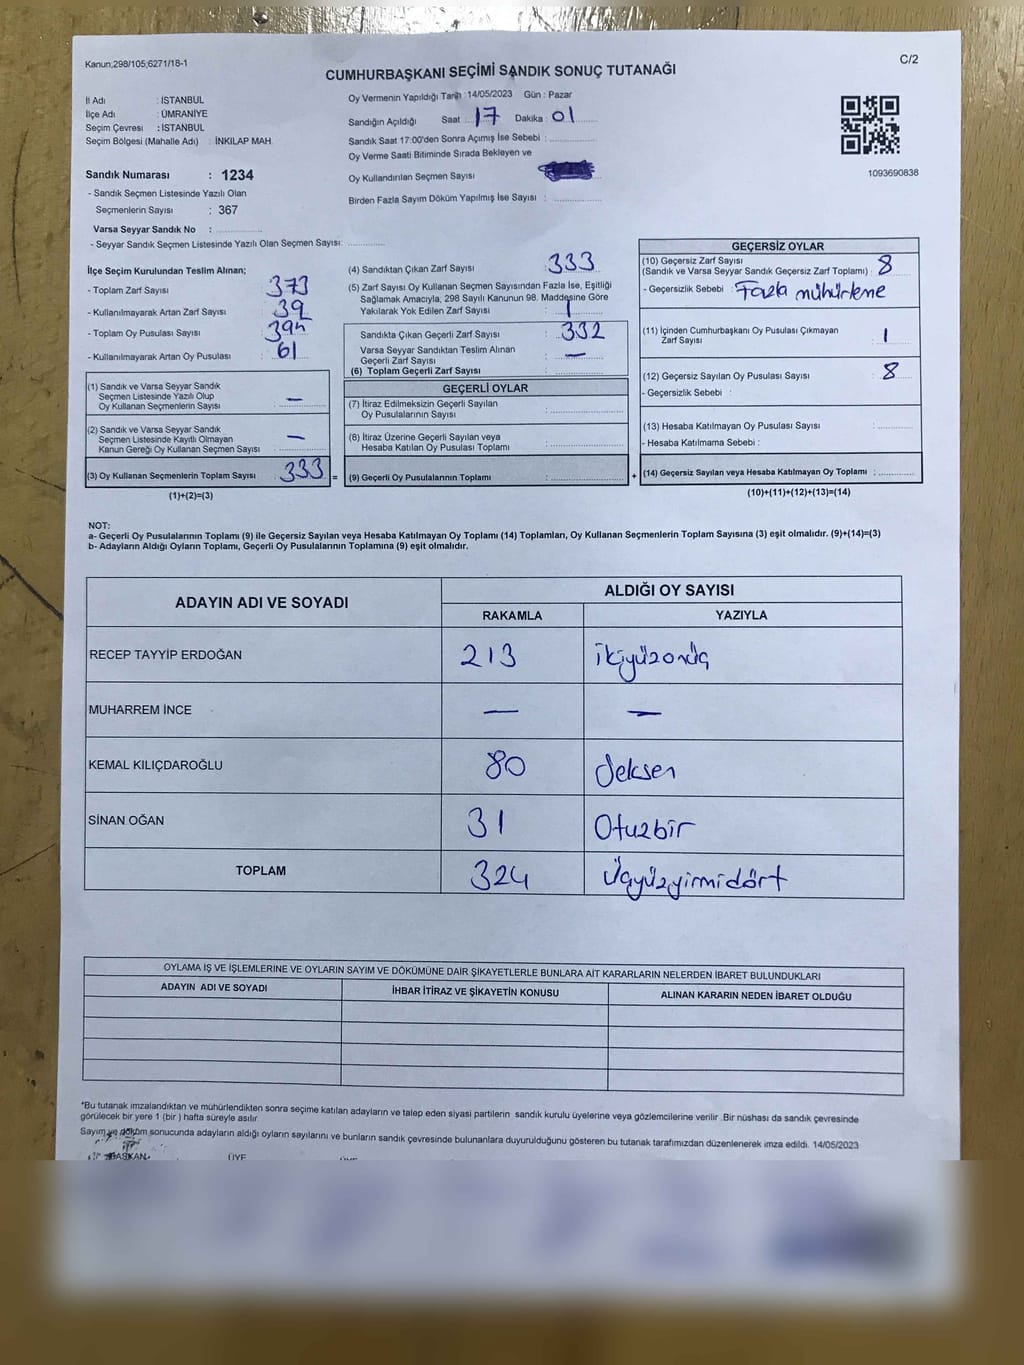 Kanun;298/105;6271/18-1
C/2
CUMHURBAŞKANI SEÇİMİ SANDIK SONUÇ TUTANAĞI
İl Adı : İSTANBUL
İlçe Adı : ÜMRANİYE
Seçim Çevresi : İSTANBUL
Seçim Bölgesi (Mahalle Adı) : İNKILAP MAH.
Sandık Numarası : 1234
- Sandık Seçmen Listesinde Yazılı Olan
Seçmenlerin Sayısı : 367
Varsa Seyyar Sandık No :
- Seyyar Sandık Seçmen Listesinde Yazılı Olan Seçmen Sayısı:
Oy Vermenin Yapıldığı Tarih :14/05/2023 Gün : Pazar
Sandığın Açıldığı Saat 17 Dakika 01
Sandık Saat 17:00'den Sonra Açımış İse Sebebi :
Oy Verme Saati Bitiminde Sırada Bekleyen ve
Oy Kullandırılan Seçmen Sayısı
Birden Fazla Sayım Döküm Yapılmış İse Sayısı :
1093690838
İlçe Seçim Kurulundan Teslim Alınan;
- Toplam Zarf Sayısı : 373
- Kullanılmayarak Artan Zarf Sayısı : 39
- Toplam Oy Pusulası Sayısı :
- Kullanılmayarak Artan Oy Pusulası : 61
(1) Sandık ve Varsa Seyyar Sandık
Seçmen Listesinde Yazılı Olup
Oy Kullanan Seçmenlerin Sayısı : —
(2) Sandık ve Varsa Seyyar Sandık
Seçmen Listesinde Kayıtlı Olmayan
Kanun Gereği Oy Kullanan Seçmen Sayısı : —
(3) Oy Kullanan Seçmenlerin Toplam Sayısı : 333 =
(1)+(2)=(3)
(4) Sandıktan Çıkan Zarf Sayısı : 333
(5) Zarf Sayısı Oy Kullanan Seçmen Sayısından Fazla İse, Eşitliği
Sağlamak Amacıyla, 298 Sayılı Kanunun 98. Maddesine Göre
Yakılarak Yok Edilen Zarf Sayısı : 1
Sandıkta Çıkan Geçerli Zarf Sayısı : 332
Varsa Seyyar Sandıktan Teslim Alınan
Geçerli Zarf Sayısı : —
(6) Toplam Geçerli Zarf Sayısı :
GEÇERLİ OYLAR
(7) İtiraz Edilmeksizin Geçerli Sayılan
Oy Pusulalarının Sayısı :
(8) İtiraz Üzerine Geçerli Sayılan veya
Hesaba Katılan Oy Pusulası Toplamı :
(9) Geçerli Oy Pusulalarının Toplamı : +
GEÇERSİZ OYLAR
(10) Geçersiz Zarf Sayısı
(Sandık ve Varsa Seyyar Sandık Geçersiz Zarf Toplamı) : 8
- Geçersizlik Sebebi : Fazla mühürleme
(11) İçinden Cumhurbaşkanı Oy Pusulası Çıkmayan
Zarf Sayısı : 1
(12) Geçersiz Sayılan Oy Pusulası Sayısı : 8
- Geçersizlik Sebebi :
(13) Hesaba Katılmayan Oy Pusulası Sayısı :
- Hesaba Katılmama Sebebi :
(14) Geçersiz Sayılan veya Hesaba Katılmayan Oy Toplamı :
(10)+(11)+(12)+(13)=(14)
NOT:
a- Geçerli Oy Pusulalarının Toplamı (9) ile Geçersiz Sayılan veya Hesaba Katılmayan Oy Toplamı (14) Toplamları, Oy Kullanan Seçmenlerin Toplam Sayısına (3) eşit olmalıdır. (9)+(14)=(3)
b- Adayların Aldığı Oyların Toplamı, Geçerli Oy Pusulalarının Toplamına (9) eşit olmalıdır.
ADAYIN ADI VE SOYADI ALDIĞI OY SAYISI
RAKAMLA YAZIYLA
RECEP TAYYİP ERDOĞAN 213 ikiyüzonüç
MUHARREM İNCE — —
KEMAL KILIÇDAROĞLU 80 Seksen
SİNAN OĞAN 31 Otuzbir
TOPLAM 324 Üçyüzyirmidört
OYLAMA İŞ VE İŞLEMLERİNE VE OYLARIN SAYIM VE DÖKÜMÜNE DAİR ŞİKAYETLERLE BUNLARA AİT KARARLARIN NELERDEN İBARET BULUNDUKLARI
ADAYIN ADI VE SOYADI İHBAR İTİRAZ VE ŞİKAYETİN KONUSU ALINAN KARARIN NEDEN İBARET OLDUĞU
*Bu tutanak imzalandıktan ve mühürlendikten sonra seçime katılan adayların ve talep eden siyasi partilerin sandık kurulu üyelerine veya gözlemcilerine verilir .Bir nüshası da sandık çevresinde
görülecek bir yere 1 (bir ) hafta süreyle asılır.
Sayım ve döküm sonucunda adayların aldığı oyların sayılarını ve bunların sandık çevresinde bulunanlara duyurulduğunu gösteren bu tutanak tarafımızdan düzenlenerek imza edildi. 14/05/2023
BAŞKAN ÜYE ÜYE